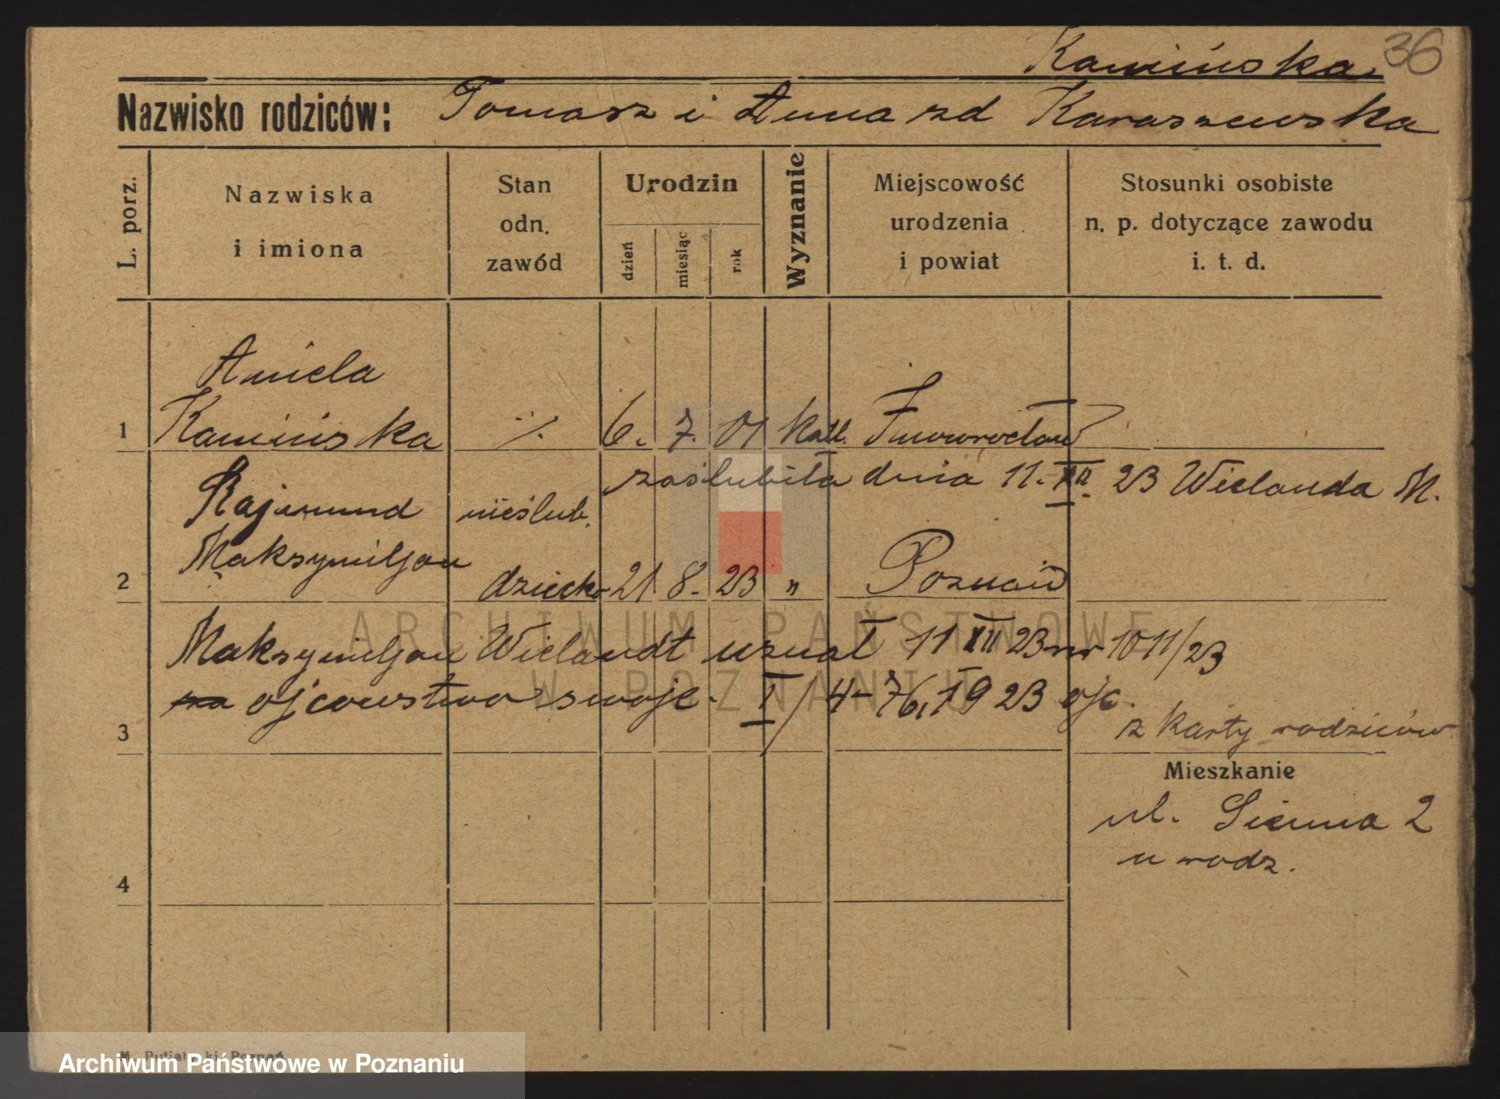 Kamińska 36
Nazwisko rodziców: Tomasz i Anna zd Karaszewska
L. porz.
Nazwiska i imiona
Stan odn. zawód
Urodzin
dzień
miesiąc
rok
Wyznanie
Miejscowość urodzenia i powiat
Stosunki osobiste n. p. dotyczące zawodu i. t. d.
Aniela
1 Kamińska ·/. 6. 7. 01 kat. Inowrocław
zaślubiła dnia 11. XII. 23 Wielanda M.
Rajmund nieślub.
Maksymiljan
2 dziecko 21 8. 23 " Poznań
Maksymiljan Wielandt uznał 11 XII 23 nr 1011/23
za ojcowstwo swoje. I/4-76,1923 ojc.
3 z karty rodziców
Mieszkanie
ul. Sienna 2
u rodz.
4
ARCHIWUM PAŃSTWOWE
W POZNANIU
Archiwum Państwowe w Poznaniu